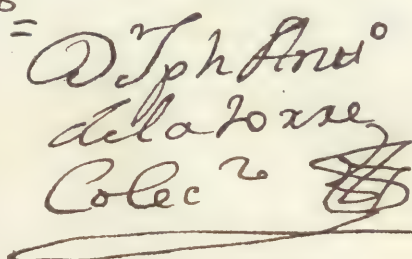 D Jph Antº
dela torre
Colecʳ